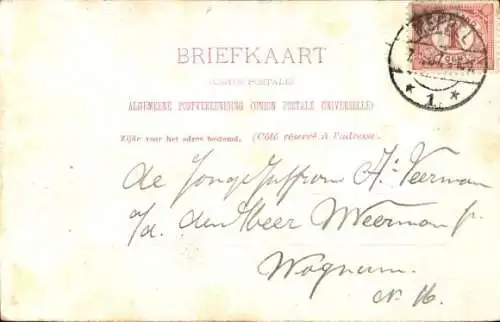 MEPPEL
1
BRIEFKAART
(CARTE POSTALE)
ALGEMEENE POSTVEREENIGING (UNION POSTALE UNIVERSELLE)
Zijde voor het adres bestemd. (Côté réservé à l'adresse.
de Jonge Juffrouw A. Veerman
a/d. den Heer Weerman
Wognum.
N. 16.